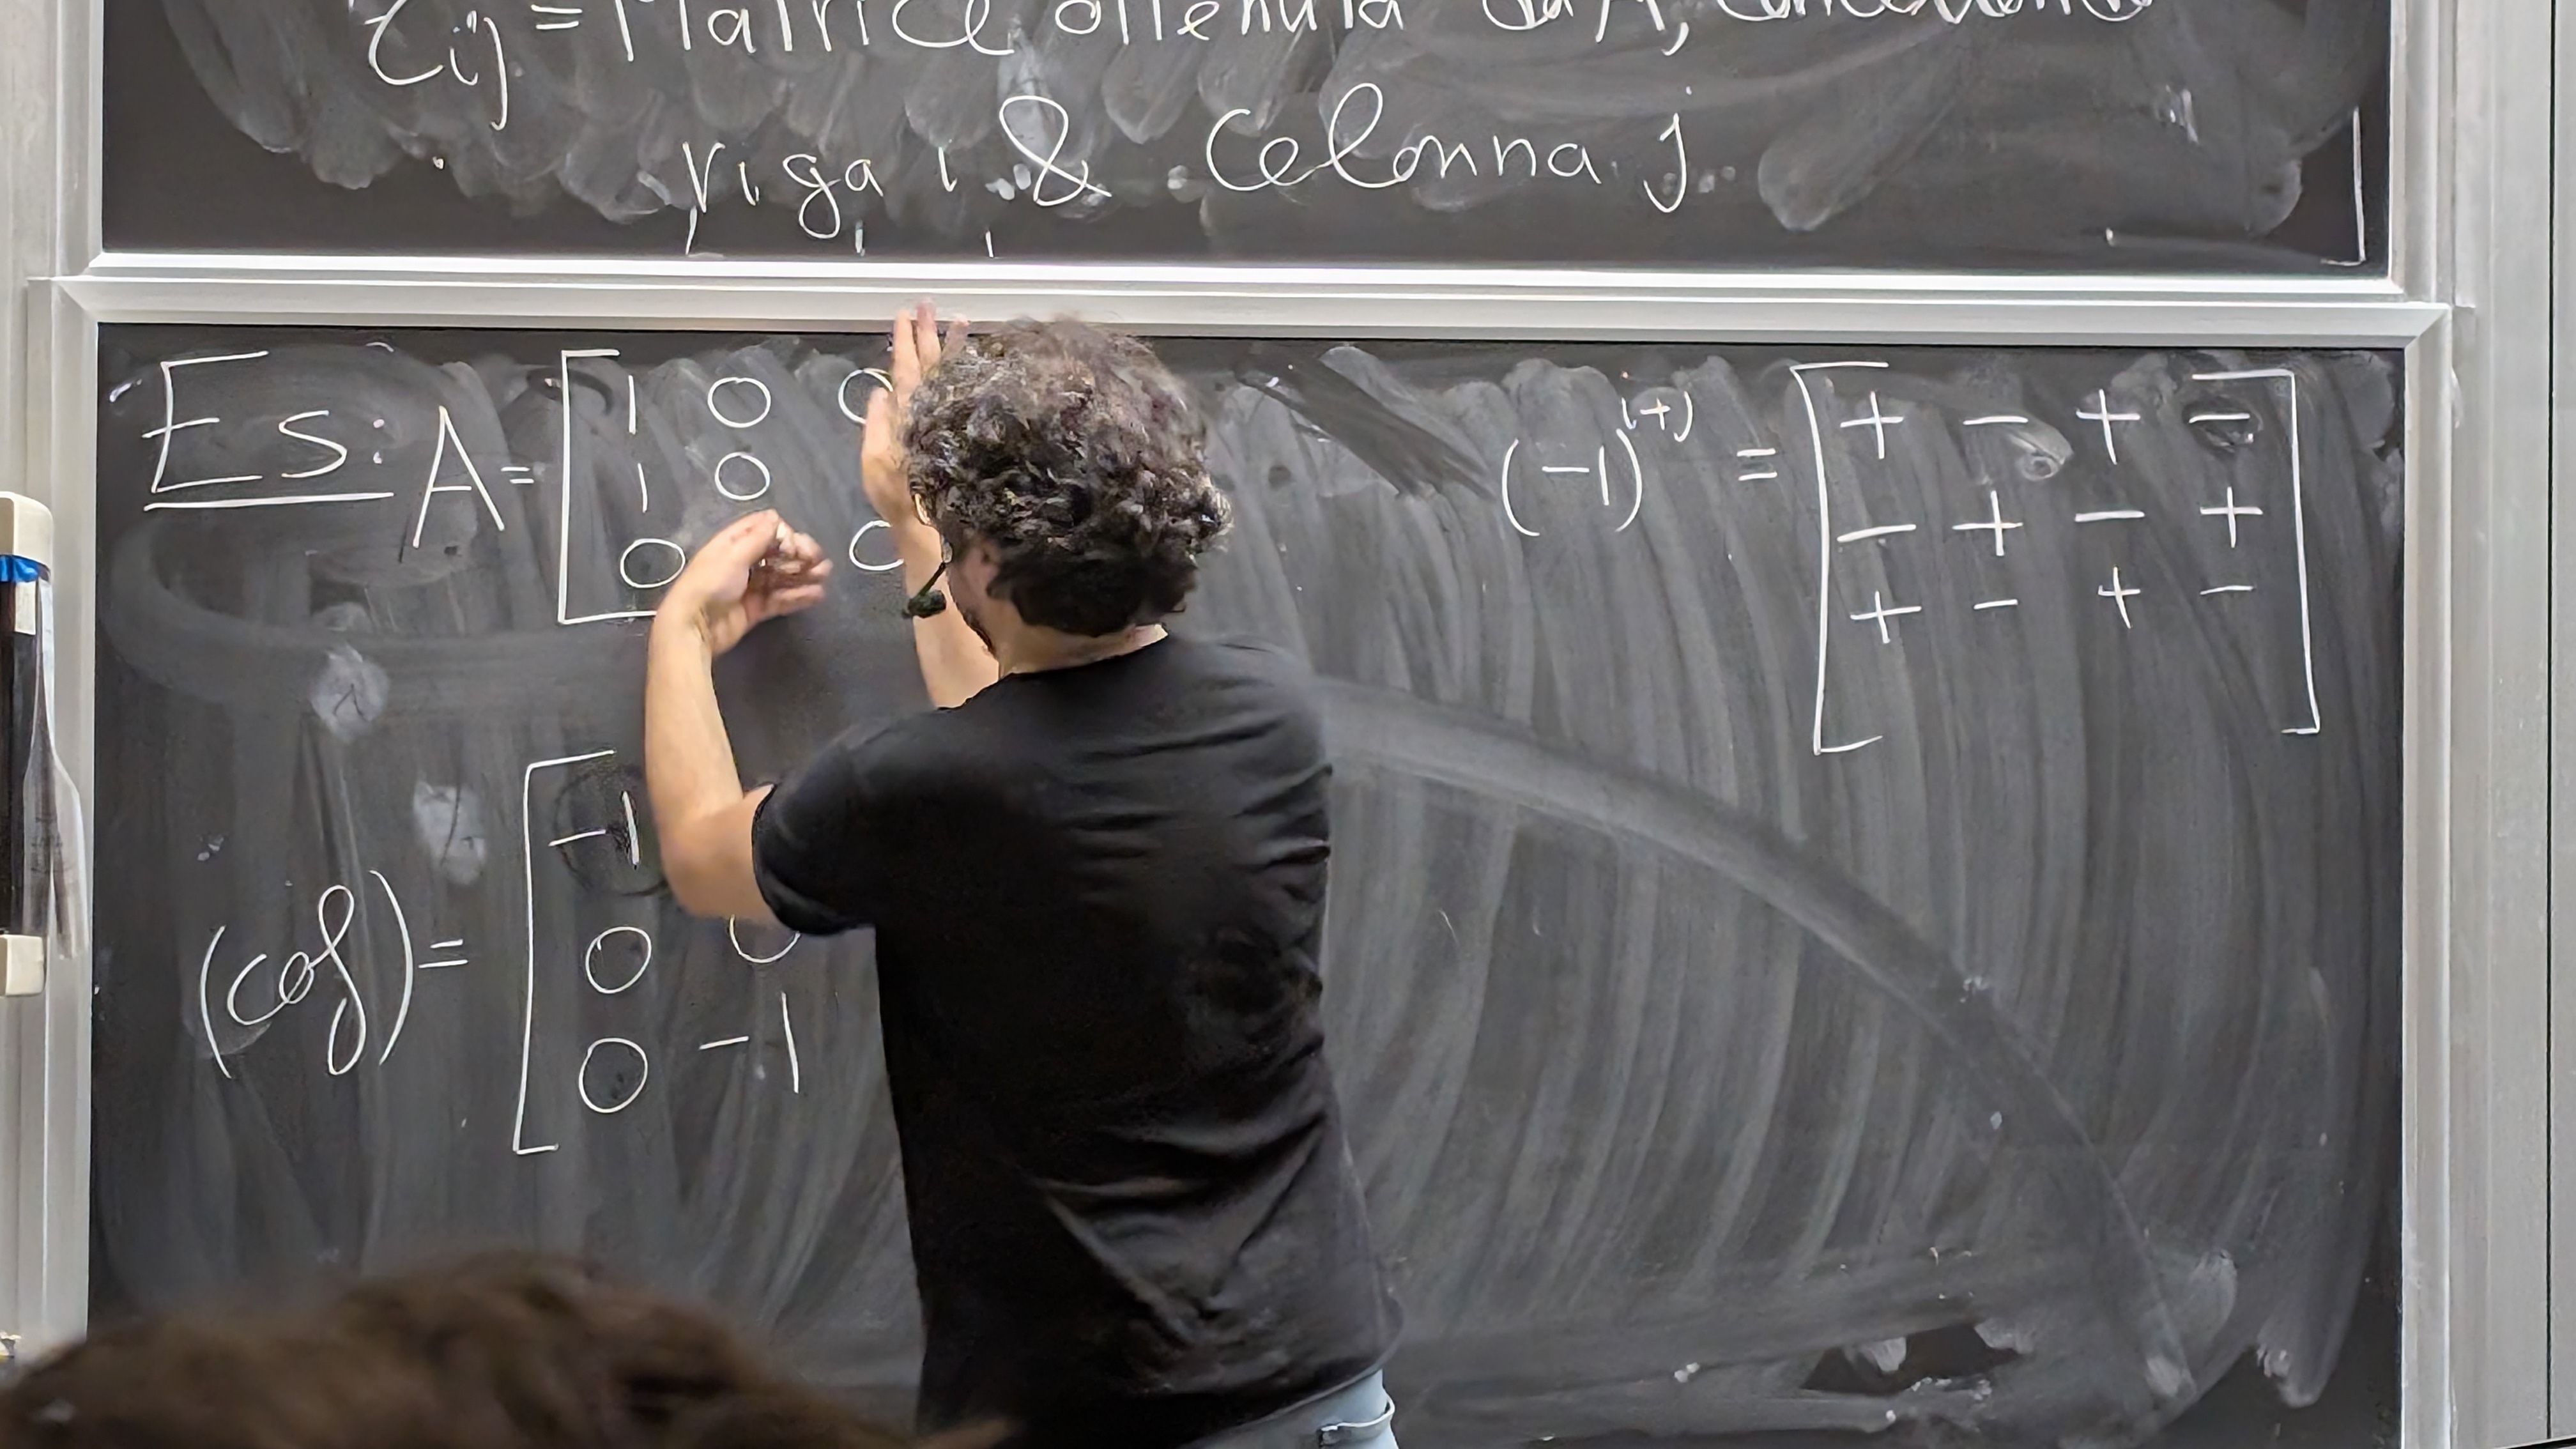 τij = Matrice ottenuta da A, cancellando
riga i & colonna j
Es: A = [ 1 0 0
1 0
0 0
(-1)^(i+j) = [ + - + -
- + - +
+ - + - ]
(cof) = [ -1
0 0
0 -1